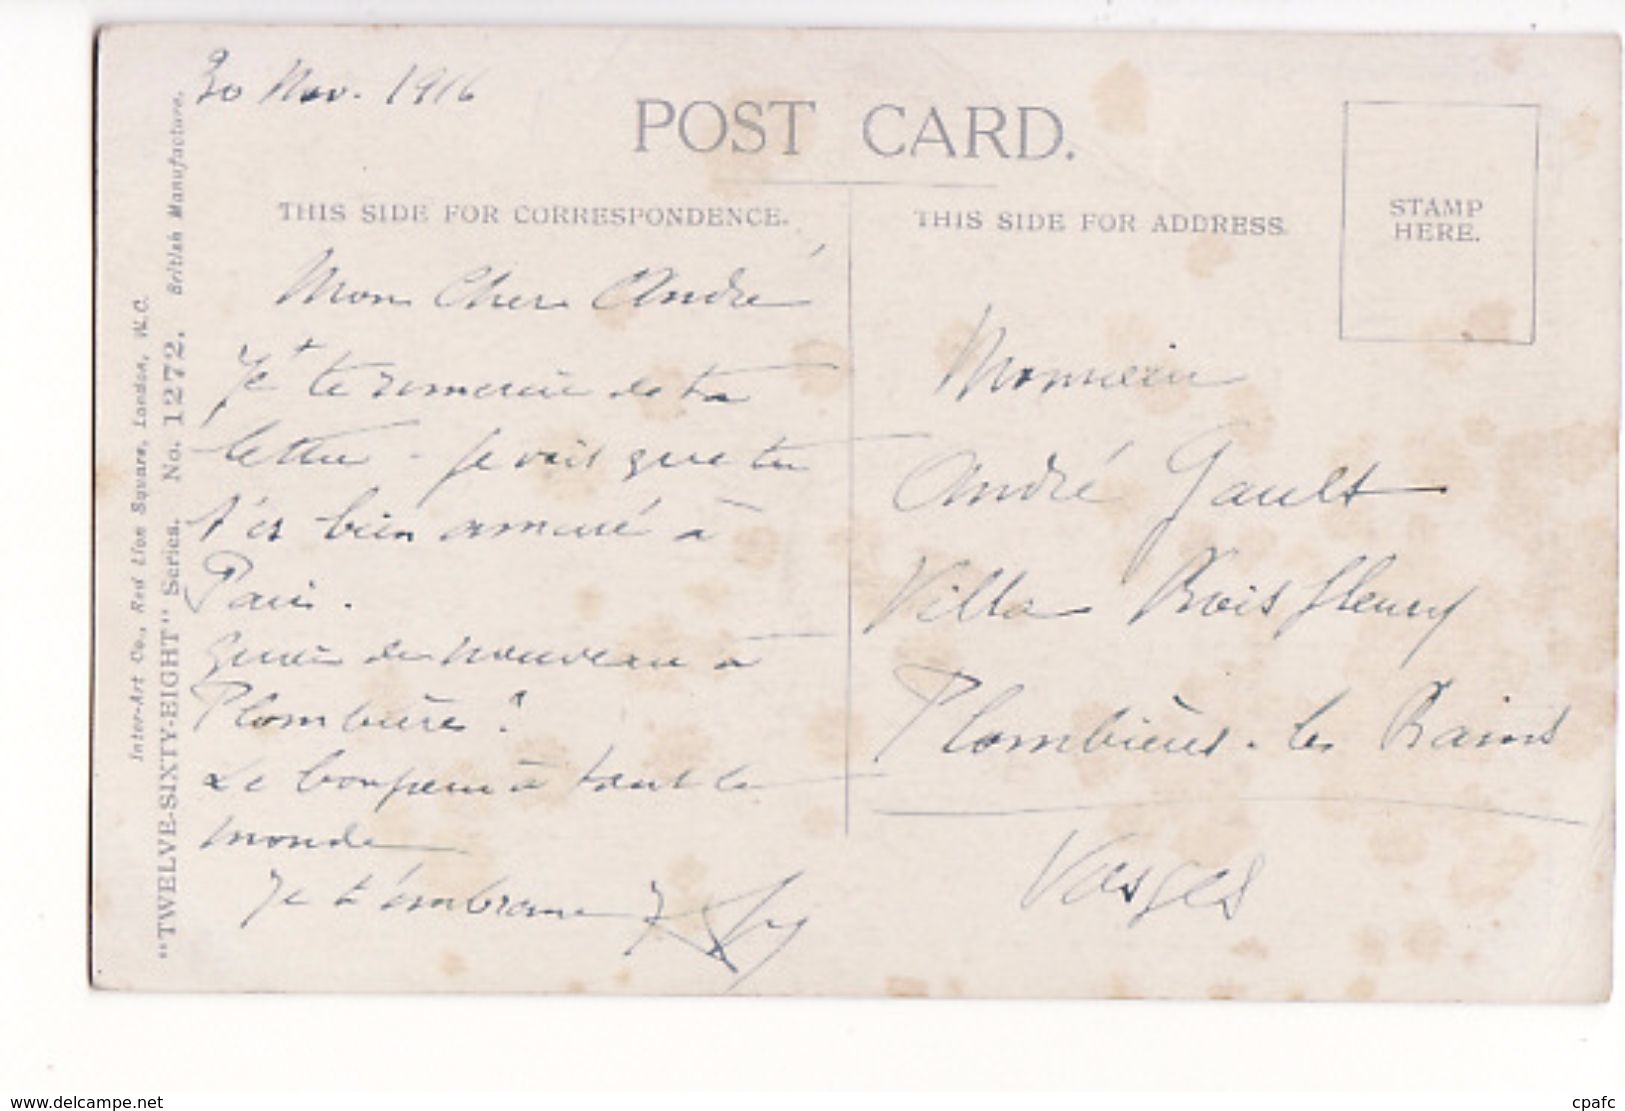 30 Nov. 1916
POST CARD.
THIS SIDE FOR CORRESPONDENCE.
Mon Cher André
Je te remercie de ta
lettre - je vois que tu
t'es bien amusé à
Paris.
Quoi de nouveau à
Plombières ?
Le bonjour à tout le
monde
Je t'embrasse
THIS SIDE FOR ADDRESS.
STAMP
HERE.
Monsieur
André Gault
Villa Bois fleury
Plombières-les Bains
Vosges
Inter-Art Co., Red Lion Square, London, W.C.
"TWELVE-SIXTY-EIGHT" Series. No. 1272. British Manufacture.
www.delcampe.net
cpafc